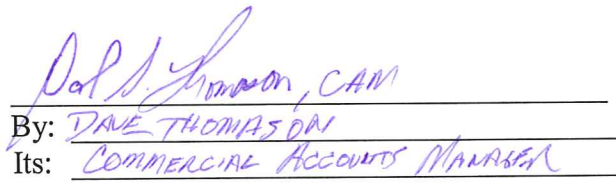 Dave S. Thomason, CAM
By: DAVE THOMASON
Its: COMMERCIAL ACCOUNTS MANAGER